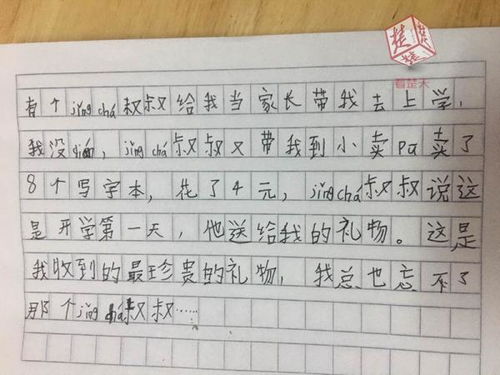 看楚天
有个jǐngchá叔叔给我当家长带我去上学，
我没qián，jǐngchá叔叔又带我到小卖pù卖了
8个写字本，花了4元，jǐngchá叔叔说这
是开学第一天，他送给我的礼物。这是
我收到的最珍贵的礼物，我总也忘不了
那个jǐngchá叔叔……